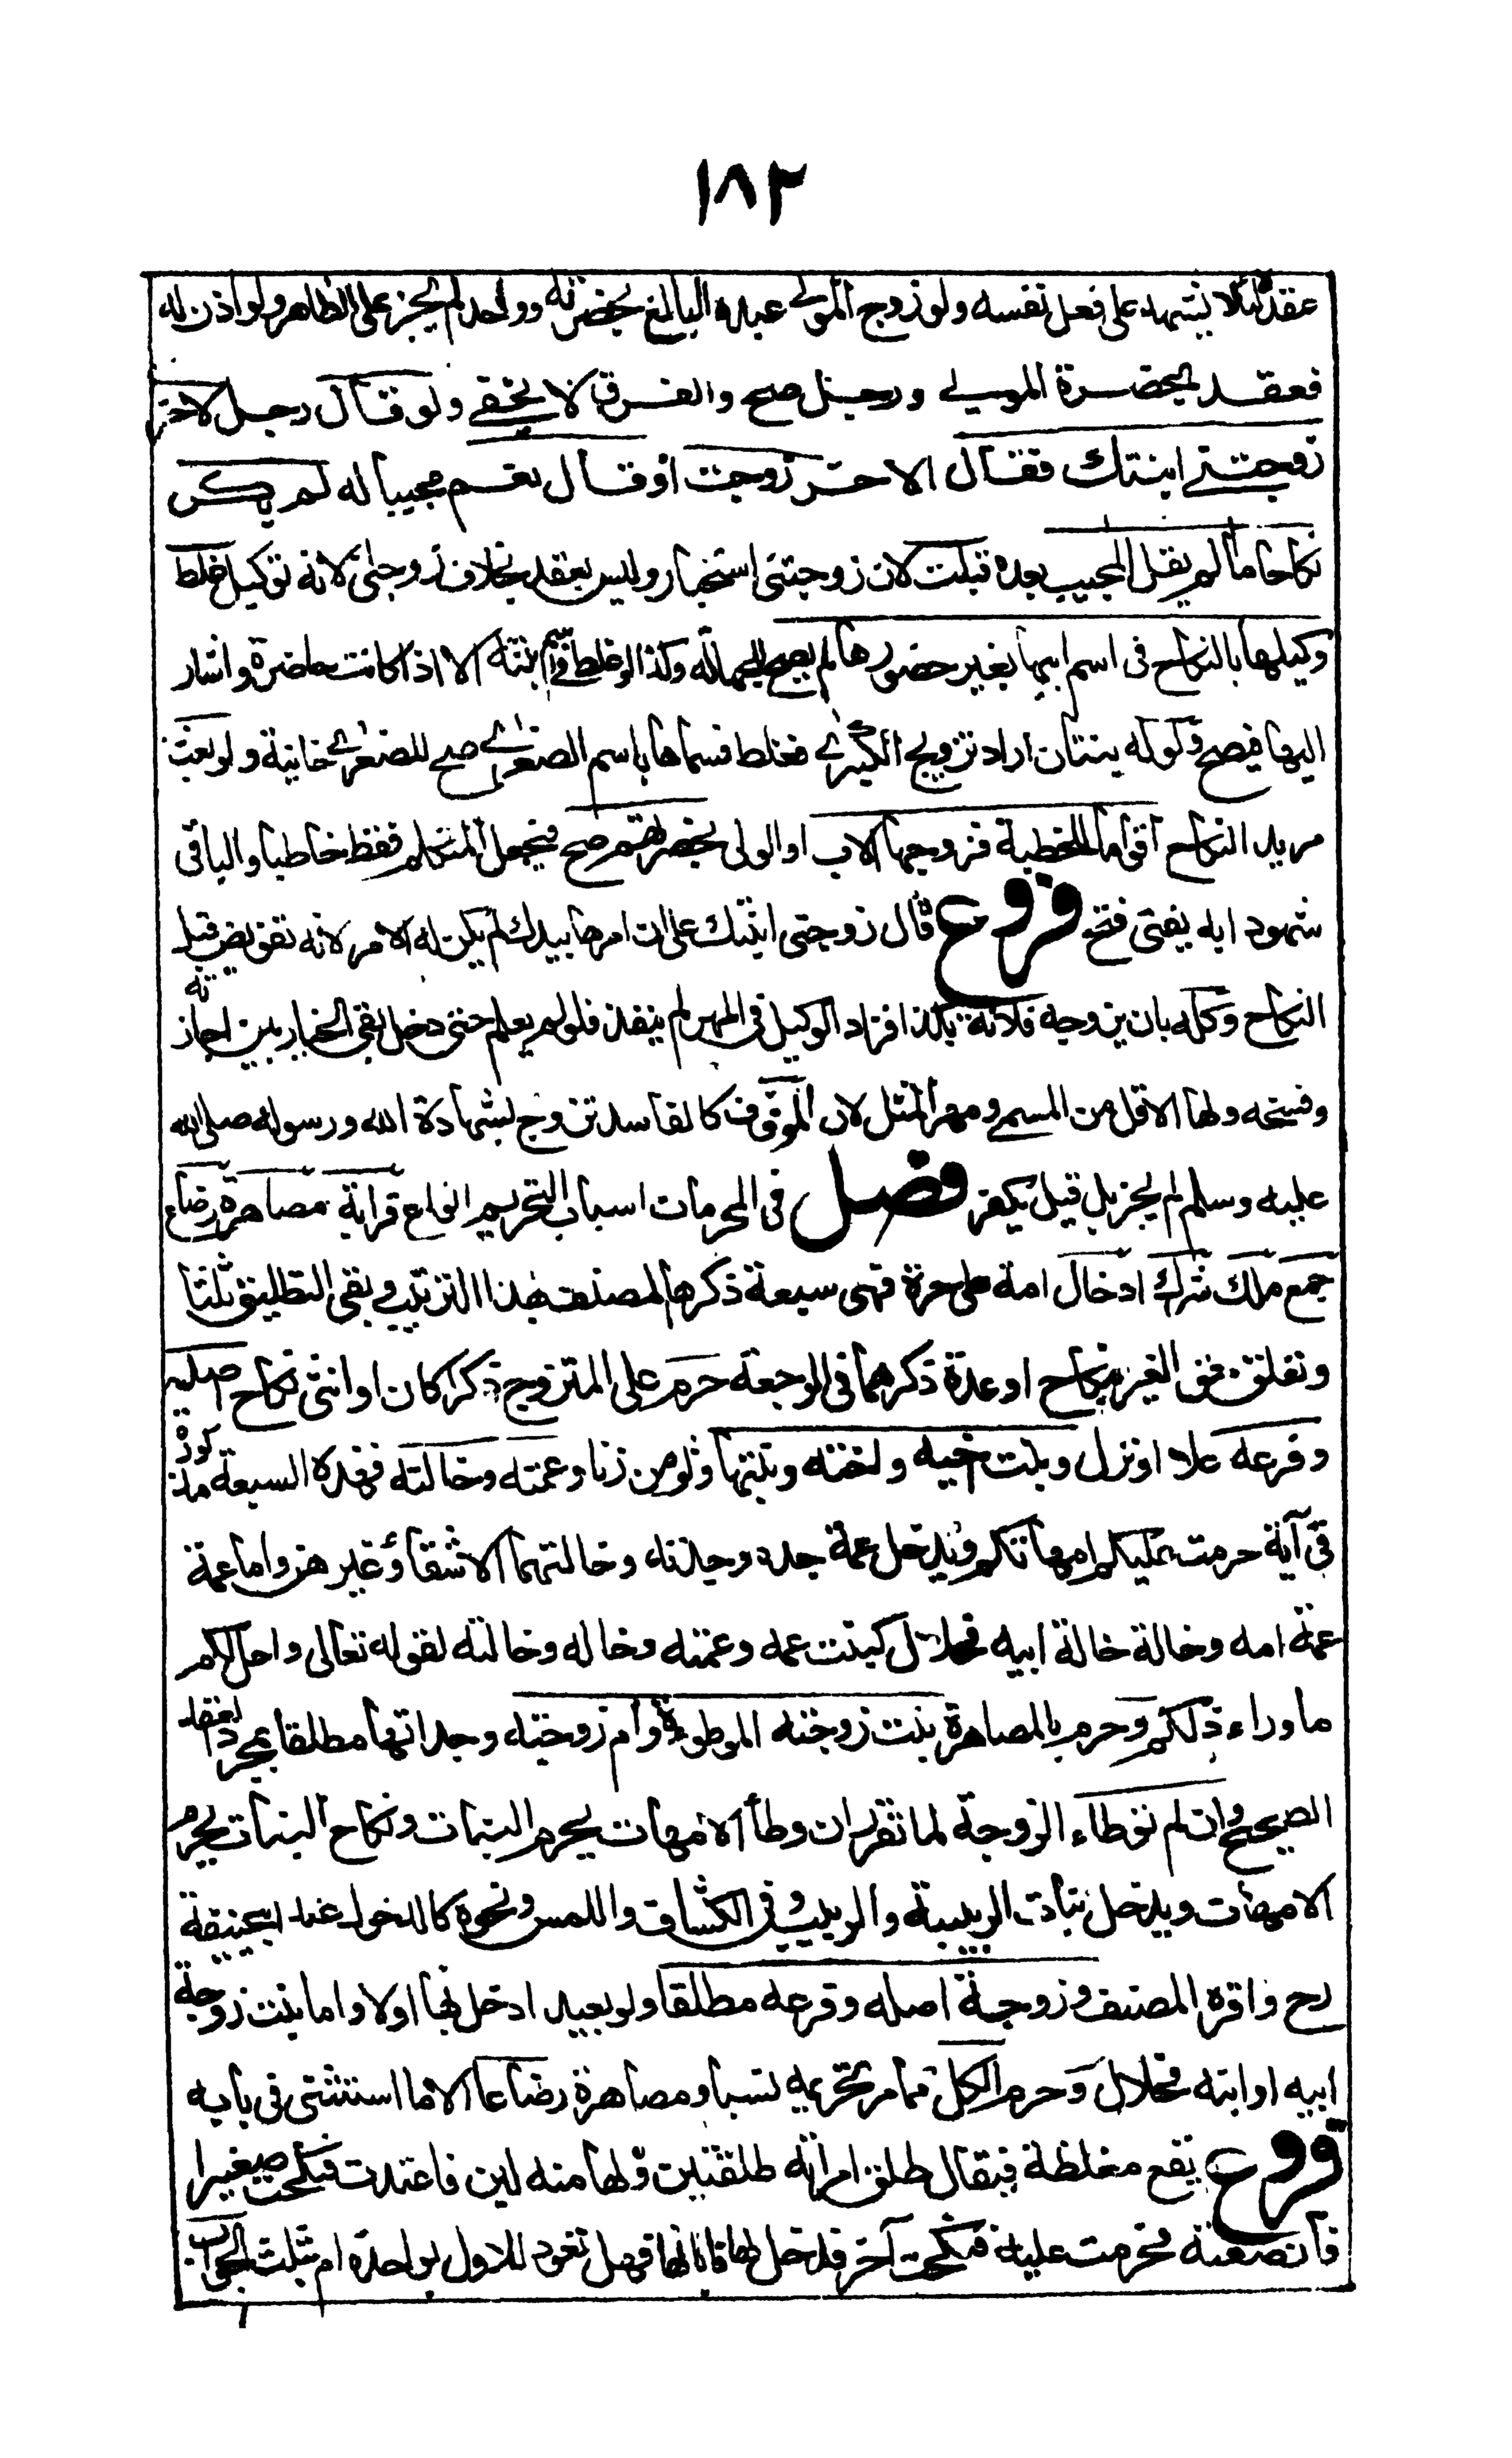 ١٨٢
عقد لئلا يشهد على فعل نفسه ولو زوج المولى عبده البالغ بحضرته وواحد لم يجز على الظاهر ولو اذن له
فعقد بحضرة المولى ورجل صح والفرق لا يخفى ولو قال رجل لاخر
زوجتني ابنتك فقال الاخر زوجت او قال نعم مجيبا له لم يكن
نكاحا ما لم يقل المجيب بعده قبلت لان زوجتني استخبار وليس بعقد بخلاف زوجني لانه توكيل غلط
وكيلها بالنكاح فى اسم ابيها بغير حضورها لم يصح للجهالة وكذا لو غلط في اسم ابنته الا اذا كانت حاضرة واشار
اليها فيصح ولو له بنتان اراد تزويج الكبرى فغلط فسماها باسم الصغرى صح للصغرى خانية ولو بعث
مريد النكاح اقواما للخطبة فزوجها الاب او الولى بحضرتهم صح فيجعل المتكلم فقط خاطبا والباقى
شهود ابه يفتى فتح فروع قال زوجنى ابنتك على ان امرها بيدك لم يكن له الامر لانه تفويض قبل
النكاح وكله بان يزوجه فلانة بكذا فزاد الوكيل فى المهر لم ينفذ فلو لم يعلم حتى دخل بقى الخيار بين اجازته
وفسخه ولها الاقل من المسمى ومهر المثل لان الموقوف كالفاسد تزوج بشهادة الله ورسوله صلى الله
عليه وسلم لم يجز بل قيل يكفر فصل فى المحرمات اسباب التحريم انواع قرابة مصاهرة رضاع
جمع ملك شرك ادخال امة على حرة فهى سبعة ذكرها المصنف بهذا الترتيب وبقى التطليق ثلثا
وتعلق حق الغير بنكاح او عدة ذكرهما فى الرجعة حرم على المتزوج ذكرا كان او انثى نكاح اصله
وفرعه علا او نزل وبنت اخيه واخته وبنتها ولو من زنا وعمته وخالته فهذه السبعة مذكورة
فى آية حرمت عليكم امهاتكم ويدخل عمة جده وجدته وخالتهما الاشقاؤ غيرهن واما عمة
عمة امه وخالة خالة ابيه فحلال كبنت عمه وعمته وخاله وخالته لقوله تعالى واحل لكم
ما وراء ذلكم وحرم بالمصاهرة بنت زوجته الموطوءة وام زوجته وجداتها مطلقا بمجرد العقد
الصحيح وان لم توطاء الزوجة لما تقرر ان وطأ الامهات يحرم البنات ونكاح البنات يحرم
الامهات ويدخل بنات الربيبة والربيب وفى الكشاف واللمس ونحوه كالدخول عند ابيحنيفة
رح واقره المصنف وزوجة اصله وفرعه مطلقا ولو بعيدا دخل بها اولا واما بنت زوجة
ابيه او ابنه فحلال وحرم الكل مما مر تحريمه نسبا ومصاهرة رضاعا الا ما استثنى فى بابه
فروع يقع مغلطة فيقال طلق امرأته طلقتين ولها منه لبن فاعتدت فنكحت صغيرا
فارضعته فحرمت عليه فنكحت آخر فدخل بها فابانها فهل تعود للاول بواحدة ام بثلث الجواب